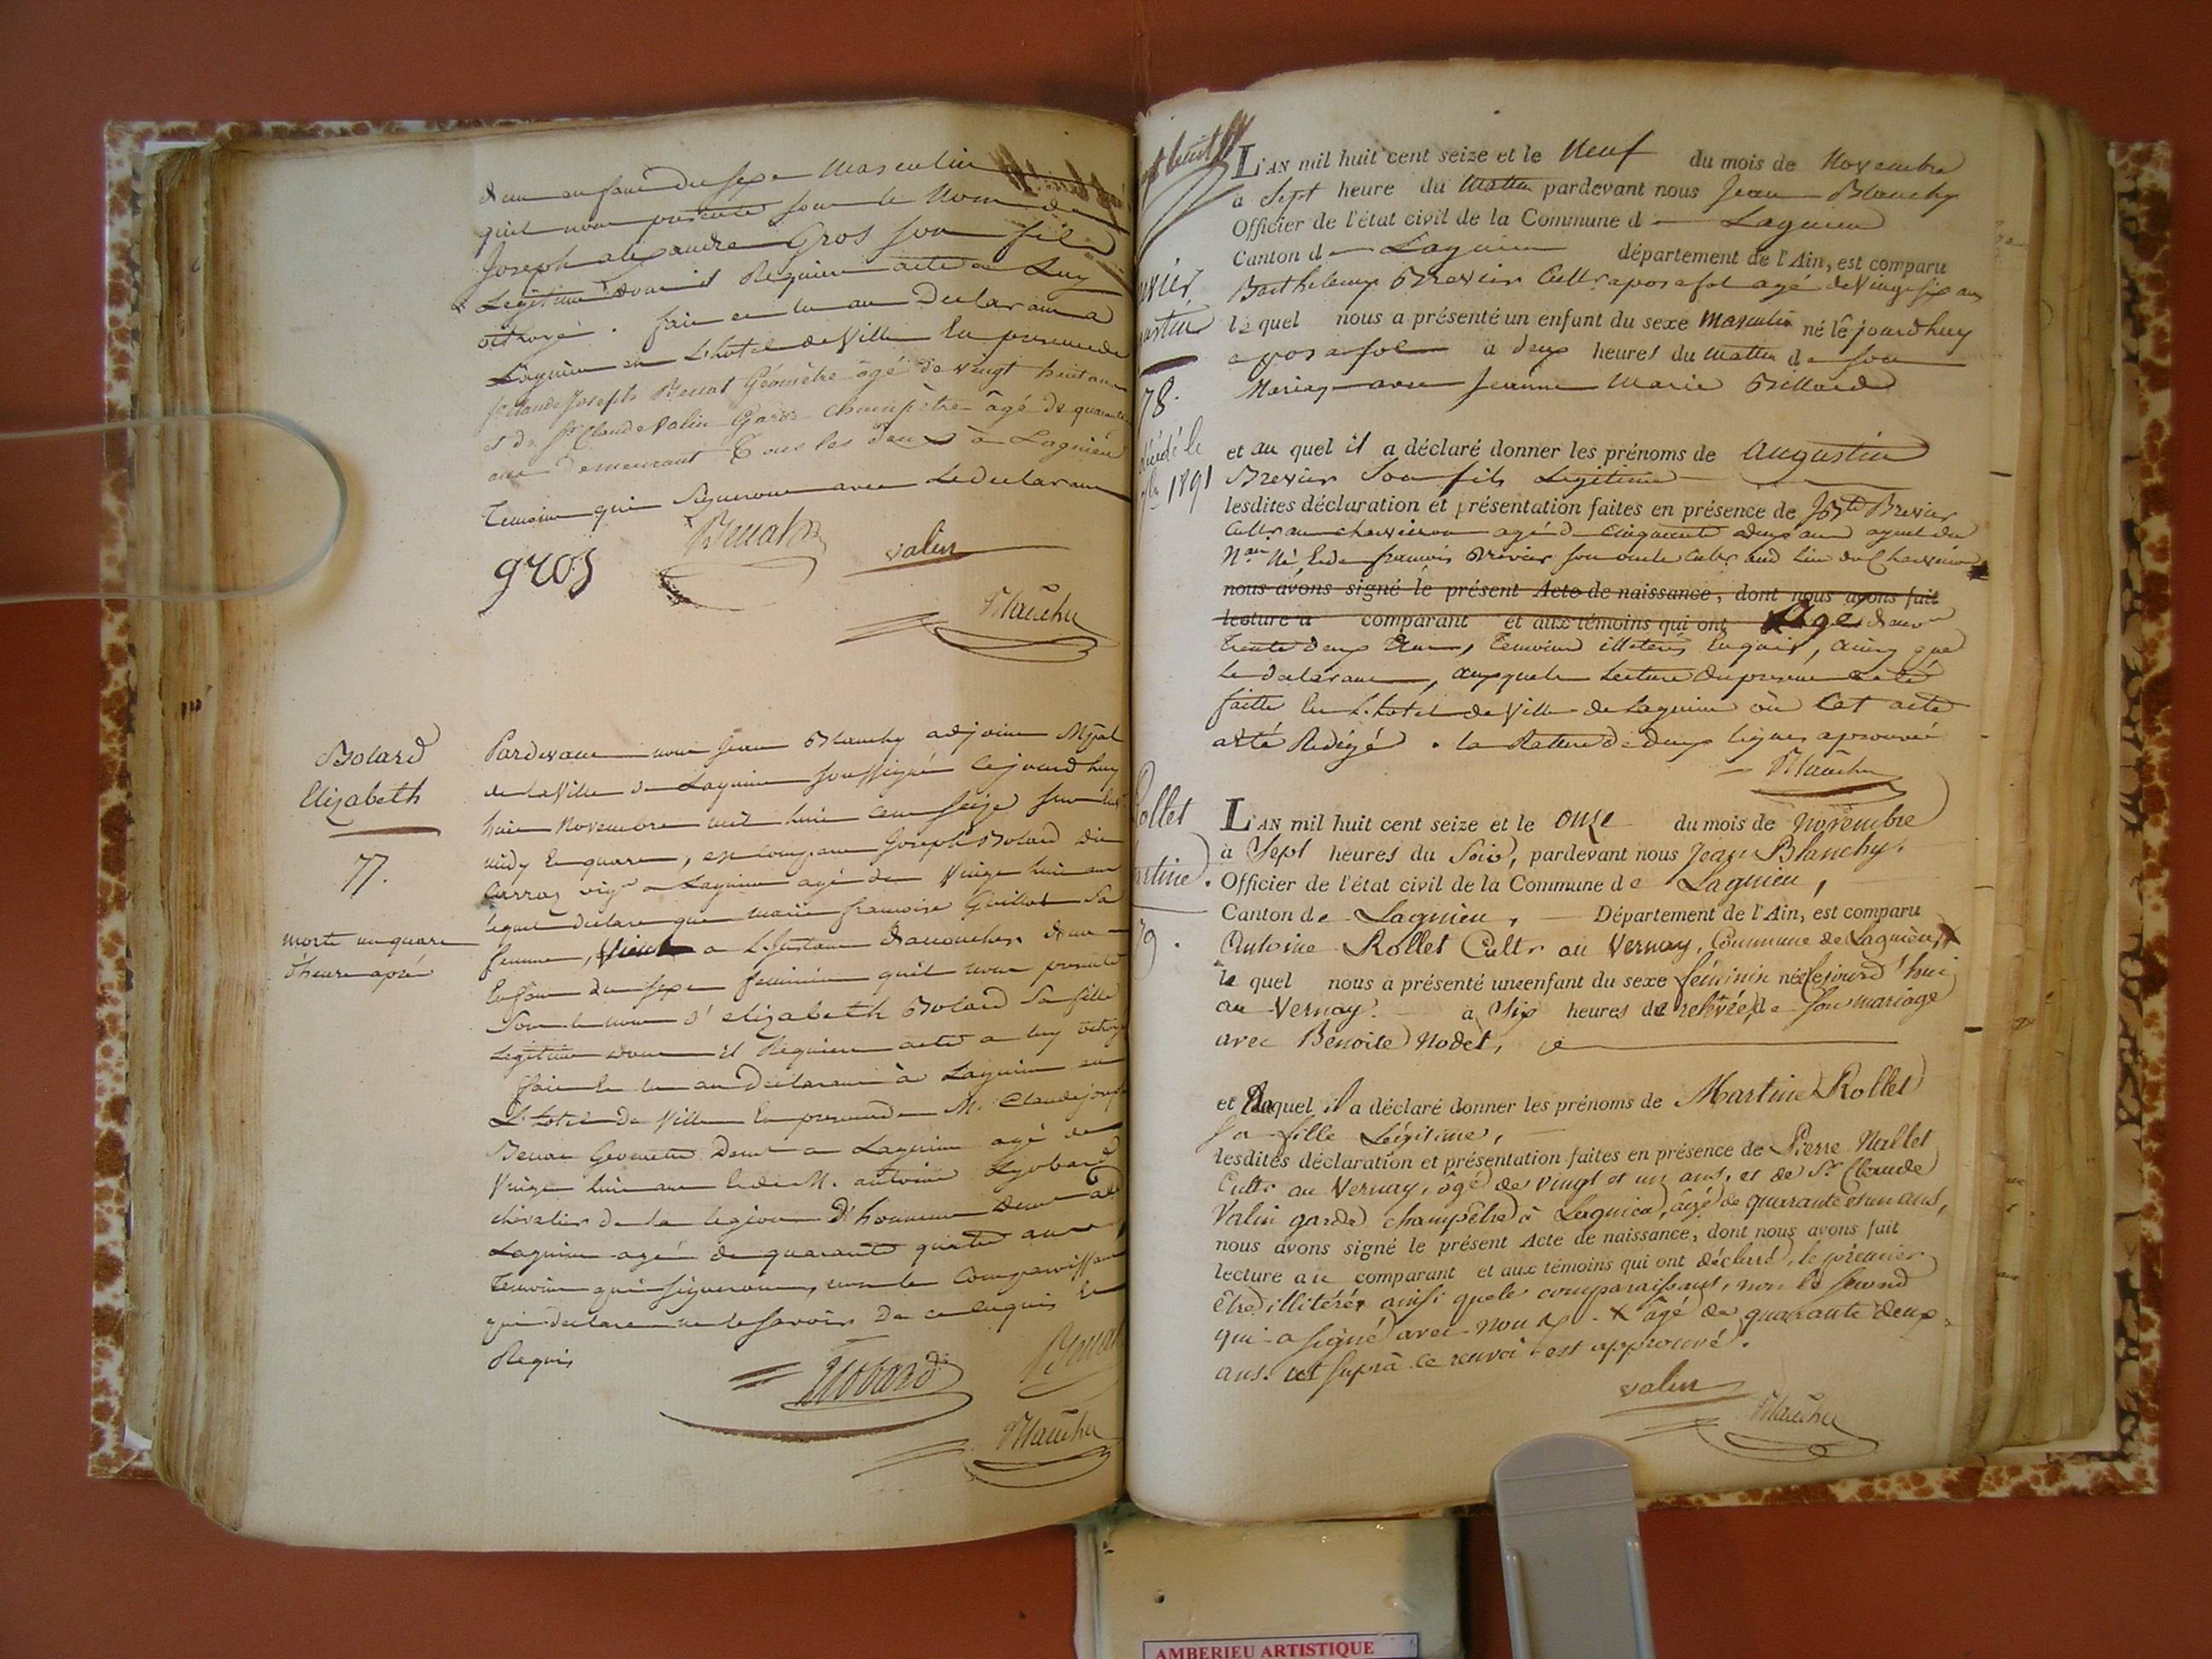 d'un enfant du sexe masculin
qu'il nous presente sous le Nom de
Joseph alexandre Gros son fils
Legitime dont il Requiere acte a Luy
octroyé. fait et lu au Declarant a
Lagnieu en L'hotel de Ville En presence de
Sr Claude Joseph Benat Géomètre âgé de vingt huit ans
et de Sr Claude Valin Garde champêtre âgé de quarante
ans demeurant Tous les deux à Lagnieu
temoins qui signeront avec Le declarant
gros
valin
Blanchy
Bolard
Elizabeth
77.
morte un quart
d'heure après
Pardevant nous Jean Blanchy adjoint Mpal
de la Ville de Lagnieu soussigné cejourdhuy
huit Novembre mil huit cent seize sur les
midy En quart, est comparu Joseph Bolard dit
vigr a Lagnieu agé de Vingt huit ans
lequel declare que marie francoise Guillot Sa
femme, vient a L'instant d'accoucher d'un
Enfant du sexe feminin qu'il nous presente
Sous le nom d'elizabeth Bolard Sa fille
Legitime dont il Requiere acte a luy octroyé
fait et lu au declarant à Lagnieu en
L'hotel de Ville En presence de M. Claude joseph
Benat Geometre Demt a Lagnieu agé de
Vingt huit ans et de M. antoine Lyobard
chevalier de la legion d'honneur demt a
Lagnieu agé de quarante quatre ans
temoins qui signeront, non le Comparaissant
qui declare ne le savoir De ce enquis et
Requis
Lyobard
Blanchy
L'AN mil huit cent seize et le Neuf du mois de Novembre
à Sept heure du Matin pardevant nous Jean Blanchy
Officier de l'état civil de la Commune d Lagnieu
Canton d Lagnieu département de l'Ain, est comparu
Barthelemy Brevier Cultr a posafol agé de Vingt six ans
le quel nous a présenté un enfant du sexe Masculin né le jourdhuy
a posafol à deux heures du Matin de son
Mariage avec Jeanne Marie Billard
78.
décédé le
1891
et au quel il a déclaré donner les prénoms de Augustin
Brevier Son fils Legitime
lesdites déclaration et présentation faites en présence de Brevier
Cultr au charveyron agé de Cinquante deux ans ayeul du
Nau Né, et de francois Brevier son oncle Cultr aud lieu du Charveyron
nous avons signé le présent Acte de naissance, dont nous avons fait
lecture a comparant et aux témoins qui ont Agé d'env
trente deux Ans, temoins illeterés Enquis, ainsy que
Le declarant, auxquels Lecture du present a eté
faitte En L'hotel de Ville de Lagnieu où Cet acte
a eté Redigé. la Rature de deux lignes aprouvée
Blanchy
Rollet
79.
L'AN mil huit cent seize et le onze du mois de novembre
à Sept heures du Soir, pardevant nous Jean Blanchy,
Officier de l'état civil de la Commune de Lagnieu,
Canton de Lagnieu, Département de l'Ain, est comparu
Antoine Rollet Cultr au Vernay, Commune de Lagnieu, X
le quel nous a présenté une enfant du sexe féminin née cejourd'hui
au Vernay à Six heures de relevée, de son mariage
avec Benoite Nodet,
et Laquel il a déclaré donner les prénoms de Martine Rollet
sa fille Légitime,
lesdites déclaration et présentation faites en présence de Pierre Nallet
Cultr au Vernay, âgé de vingt et un ans, et de Sr Claude
Valin garde champêtre à Lagnieu, âgé de quarante et un ans,
nous avons signé le présent Acte de naissance, dont nous avons fait
lecture au comparant et aux témoins qui ont déclaré, le premier
être illitéré ainsi que le comparaissant, non le second
qui a signé avec nous. X âgé de quarante deux
ans. ut suprà ce renvoi est approuvé.
valin
Blanchy
AMBERIEU ARTISTIQUE